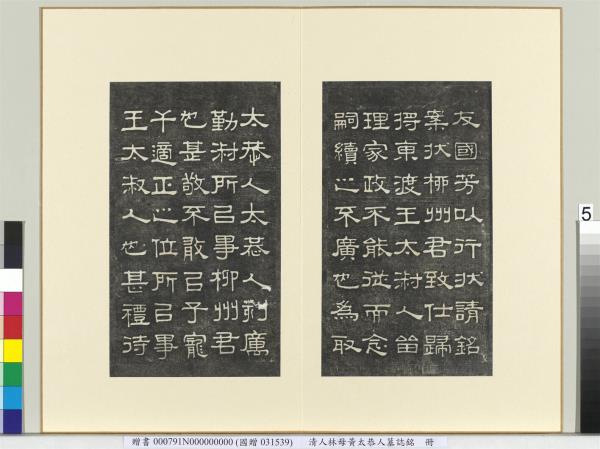 友國芳以行狀請銘
案狀柳州君致仕歸
得東渡王太淑人留
理家政不能從而念
嗣續之不廣也為取
太恭人太恭人刻厲
勤淑所以事柳州君
也甚敬不敢以子寵
干適正之位所以事
王太淑人也甚禮待
5
贈書 000791N000000000 (國贈 031539) 清人林母黃太恭人墓誌銘 冊